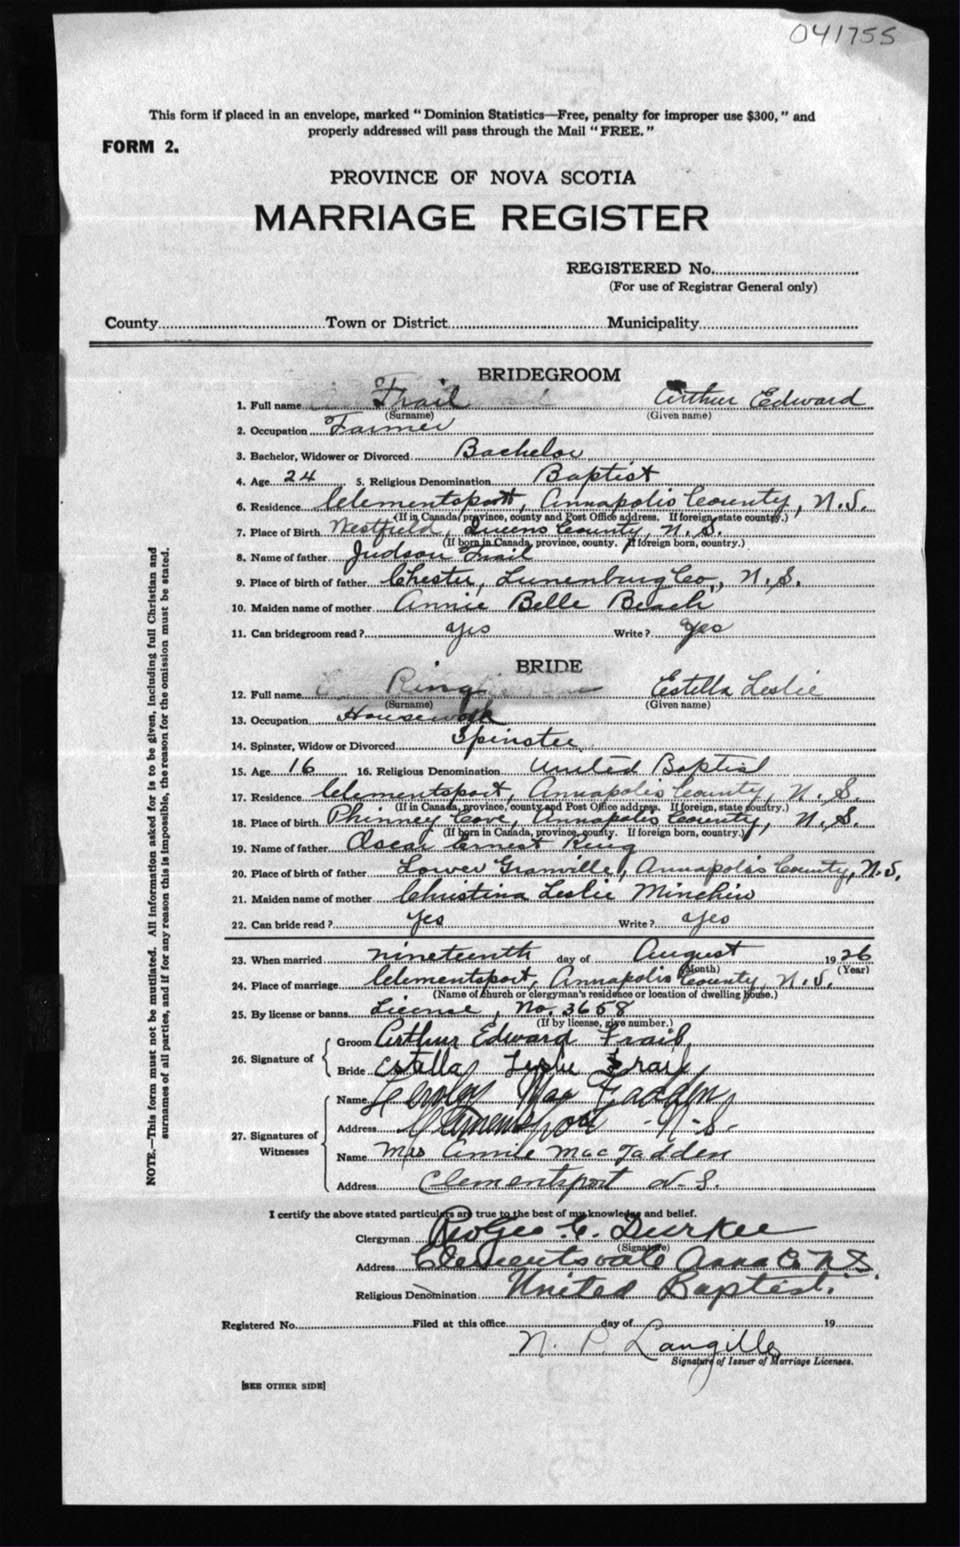 041755
This form if placed in an envelope, marked "Dominion Statistics—Free, penalty for improper use $300," and
properly addressed will pass through the Mail "FREE."
FORM 2.
PROVINCE OF NOVA SCOTIA
MARRIAGE REGISTER
REGISTERED No.
(For use of Registrar General only)
County Town or District Municipality
BRIDEGROOM
1. Full name Frail Arthur Edward
(Surname) (Given name)
2. Occupation Farmer
3. Bachelor, Widower or Divorced Bachelor
4. Age 24 5. Religious Denomination Baptist
6. Residence Clementsport, Annapolis County, N.S.
(If in Canada, province, county and Post Office address. If foreign, state country.)
7. Place of Birth Westfield, Queens County, N.S.
(If born in Canada, province, county. If foreign born, country.)
8. Name of father Judson Frail
9. Place of birth of father Chester, Lunenburg Co., N.S.
10. Maiden name of mother Annie Belle Beach
11. Can bridegroom read? Yes Write? Yes
BRIDE
12. Full name Ring Estella Leslie
(Surname) (Given name)
13. Occupation Housework
14. Spinster, Widow or Divorced Spinster
15. Age 16 16. Religious Denomination United Baptist
17. Residence Clementsport, Annapolis County, N.S.
(If in Canada, province, county and Post Office address. If foreign, state country.)
18. Place of birth Phinney Cove, Annapolis County, N.S.
(If born in Canada, province, county. If foreign born, country.)
19. Name of father Oscar Ernest Ring
20. Place of birth of father Lower Granville, Annapolis County, N.S.
21. Maiden name of mother Christina Leslie Minchin
22. Can bride read? Yes Write? Yes
23. When married nineteenth day of August 1926
(Month) (Year)
24. Place of marriage Clementsport, Annapolis County, N.S.
(Name of church or clergyman's residence or location of dwelling house.)
25. By license or banns License, No. 3658
(If by license, give number.)
26. Signature of Groom Arthur Edward Frail
Bride Estella Leslie Frail
27. Signatures of Witnesses Name MacFadden
Address Clementsport N.S.
Name Mrs Annie MacFadden
Address Clementsport N.S.
I certify the above stated particulars are true to the best of my knowledge and belief.
Clergyman Rev Geo. C. Durkee
(Signature)
Address Clementsvale Anna Co N.S.
Religious Denomination United Baptist.
Registered No. Filed at this office day of 19
N. P. Langille
Signature of Issuer of Marriage Licenses.
[SEE OTHER SIDE]
NOTE.—This form must not be mutilated. All information asked for is to be given, including full Christian and
surnames of all parties, and if for any reason this is impossible, the reason for the omission must be stated.